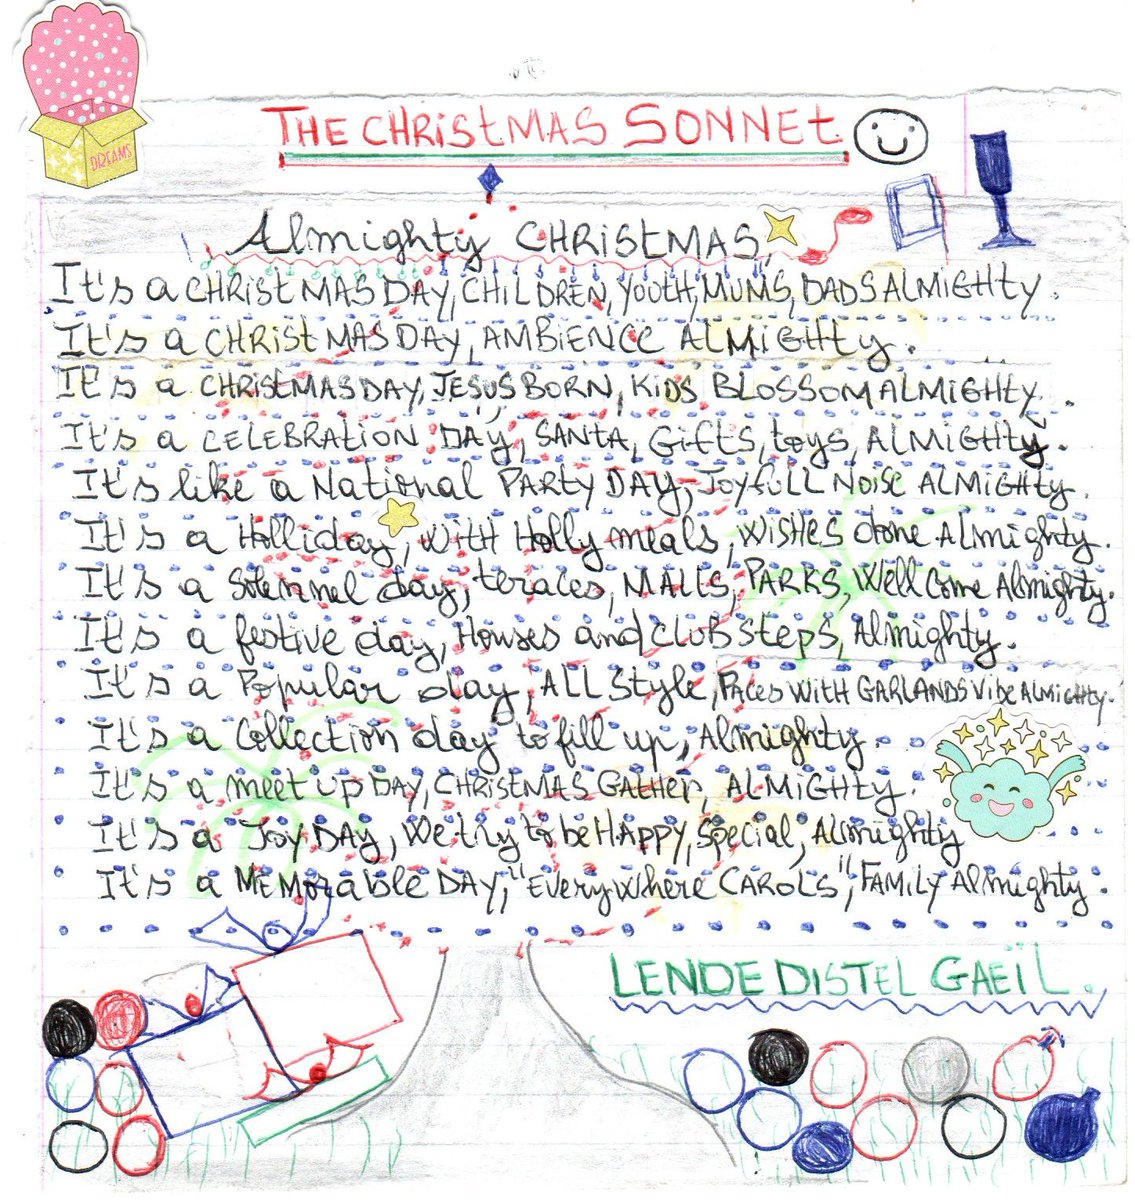 DREAMS
THE CHRIStMAS SONNEt
Almighty CHRiStMAS,
It's a CHRiStMAS DAY, CHiLDREN, YOUtH, MUMS, DADS ALMiGHty.
It's a CHRiStMAS DAY, AMBiENCE ALMiGHty.
It's a CHRiStMAS DAY, JESUS BORN, KiDS BLOSSOM ALMiGHty.
It's a CELEBRAtiON DAY, SANtA, GiftS, toys, ALMiGHty.
It's like a National PARtY DAY, JOYfULL NOiSE ALMiGHty.
It's a Holliday, with Holly meals, WiSHES done Almighty.
It's a Solemnel day, teraces, MALLS, PARKS, Well Come Almighty.
It's a festive day, Houses and CLUB StEPS, Almighty.
It's a Popular day, All Style, PACES WitH GARLANDS ViBE ALMiGHty.
It's a Collection day to fill up, Almighty.
It's a meet up DAY, CHRiStMAS GAtHer, ALMiGHty.
It's a JOY DAY, We try to be HAPPY, Special, Almighty
It's a MEMOrable DAY, "EveryWhere CAROLS", FAMiLY Almighty.
LENDE DiStEL GAEÏL.